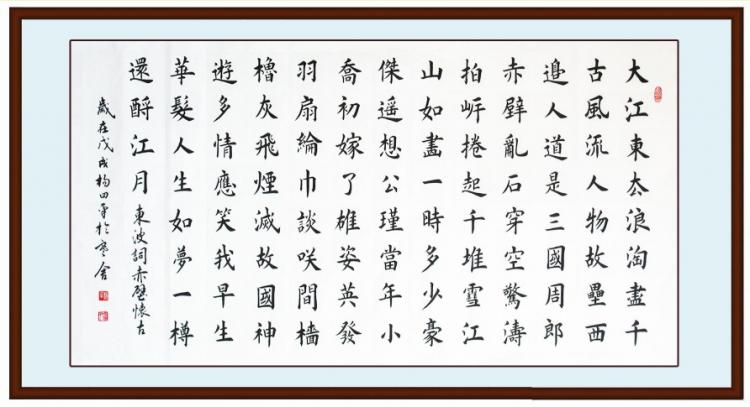 大江東厺浪淘盡千
古風流人物故壘西
邉人道是三國周郎
赤壁亂石穿空驚濤
拍岸捲起千堆雪江
山如畫一時多少豪
傑遥想公瑾當年小
喬初嫁了雄姿英發
羽扇綸巾談咲間檣
櫓灰飛煙滅故國神
遊多情應笑我早生
華髮人生如夢一樽
還酹江月 東波詞赤壁懷古
歲在戊戌杨四平於寒舍